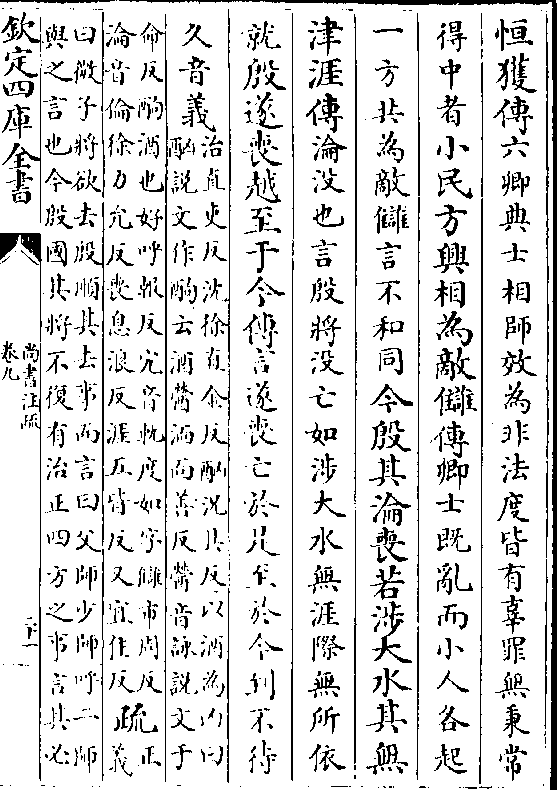 恒獲傳六卿典士相師效為非法度皆有辜罪無秉常
得中者小民方興相為敵讎傳卿士既亂而小人各起
一方共為敵讎言不和同今殷其淪喪若涉大水其無
津涯傳淪没也言殷將没亡如涉大水無涯際無所依
就殷遂喪越至于今傳言遂喪亡於是至於今到不待
久音義
治直吏反沈徐直金反酗況具反以酒為凶曰
酗説文作酌云酒醟沔面善反醟音詠説文于
命反酌酒也好呼報反宄音軌度如字讎市周反
淪音倫徐力允反喪息浪反涯五皆反又宜佳反
疏
正
義
曰微子將欲去殷順其去事而言曰父師少師呼二師
與之言也今殷國其將不復有治正四方之事言其必
欽定四庫全書
尚書注疏
卷九